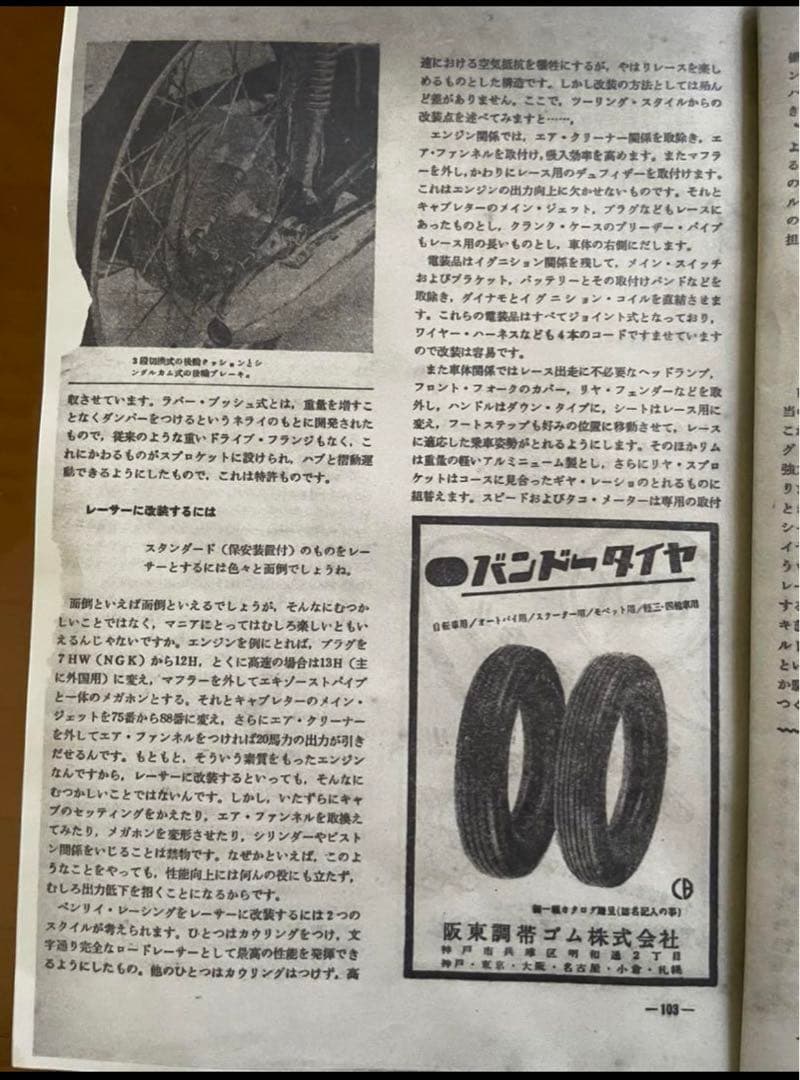 3段切換式の後輪クッションとシ
ングルカム式の後輪ブレーキ。
収させています。ラバー・ブッシュ式とは，重量を増すこ
となくダンパーをつけるというネライのもとに開発された
もので，従来のような重いドライブ・フランジもなく，こ
れにかわるものがスプロケットに設けられ，ハブと摺動運
動できるようにしたもので，これは特許ものです。
レーサーに改装するには
スタンダード（保安装置付）のものをレー
サーとするには色々と面倒でしょうね。
面倒といえば面倒といえるでしょうが，そんなにむつか
しいことではなく，マニアにとってはむしろ楽しいともい
えるんじゃないですか。エンジンを例にとれば，プラグを
7HW（NGK）から12H，とくに高速の場合は13H（主
に外国用）に変え，マフラーを外してエキゾーストパイプ
と一体のメガホンとする。それとキャブレターのメイン・
ジェットを75番から88番に変え，さらにエア・クリーナー
を外してエア・ファンネルをつければ20馬力の出力が引き
だせるんです。もともと，そういう素質をもったエンジン
なんですから，レーサーに改装するといっても，そんなに
むつかしいことではないんです。しかし，いたずらにキャ
ブのセッティングをかえたり，エア・ファンネルを取換え
てみたり，メガホンを変形させたり，シリンダーやピスト
ン関係をいじることは禁物です。なぜかといえば，このよ
うなことをやっても，性能向上には何んの役にも立たず，
むしろ出力低下を招くことになるからです。
ベンリイ・レーシングをレーサーに改装するには2つの
スタイルが考えられます。ひとつはカウリングをつけ，文
字通り完全なロードレーサーとして最高の性能を発揮でき
るようにしたもの。他のひとつはカウリングはつけず，高
速における空気抵抗を犠牲にするが，やはりレースを楽し
めるものとした構造です。しかし改装の方法としては殆ん
ど差がありません。ここで，ツーリング・スタイルからの
改装点を述べてみますと……，
エンジン関係では，エア・クリーナー関係を取除き，エ
ア・ファンネルを取付け，吸入効率を高めます。またマフラ
ーを外し，かわりにレース用のデュフィザーを取付けます。
これはエンジンの出力向上に欠かせないものです。それと
キャブレターのメイン・ジェット，プラグなどもレースに
あったものとし，クランク・ケースのブリーザー・パイプ
もレース用の長いものとし，車体の右側にだします。
電装品はイグニション関係を残して，メイン・スイッチ
およびブラケット，バッテリーとその取付けバンドなどを
取除き，ダイナモとイグニション・コイルを直結させま
す。これらの電装品はすべてジョイント式となっており，
ワイヤー・ハーネスなども4本のコードですませています
ので改装は容易です。
また車体関係ではレース出走に不必要なヘッドランプ，
フロント・フオークのカバー，リヤ・フェンダーなどを取
外し，ハンドルはダウン・タイプに，シートはレース用に
変え，フートステップも好みの位置に移動させて，レース
に適応した乗車姿勢がとれるようにします。そのほかリム
は重量の軽いアルミニューム製とし，さらにリヤ・スプロ
ケットはコースに見合ったギヤ・レーショのとれるものに
組替えます。スピードおよびタコ・メーターは専用の取付
バンドータイヤ
自転車用/オートバイ用/スクーター用/モペット用/軽三・四輪車用
CB
カタログ贈呈(誌名記入の事)
阪東調帯ゴム株式会社
神戸市兵庫区明和通2丁目
神戸・東京・大阪・名古屋・小倉・札幌
—103—